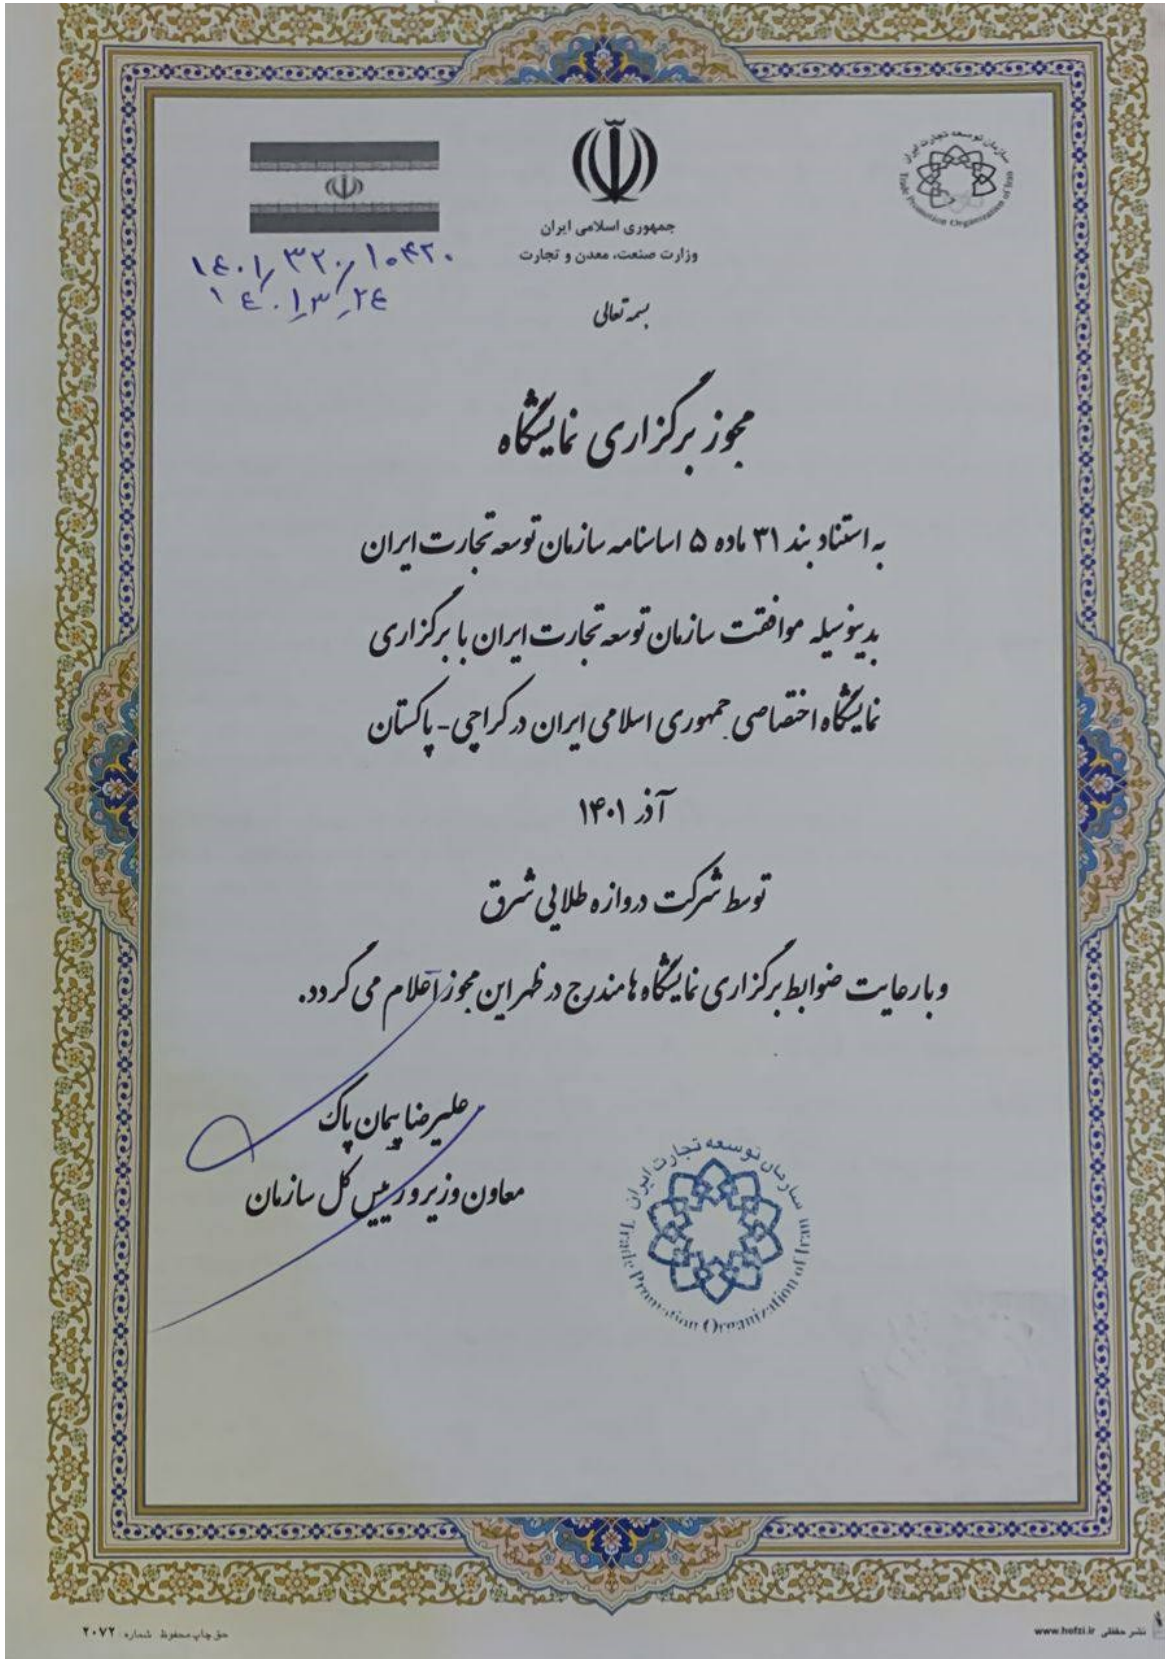 سازمان توسعه تجارت ایران
Trade Promotion Organization of Iran
جمهوری اسلامی ایران
وزارت صنعت، معدن و تجارت
۱۴۰۱/۳۲۰/۱۰۴۲۰
۱۴۰۱/۳/۲۴
بسمه تعالی
مجوز برگزاری نمایشگاه
به استناد بند ۳۱ ماده ۵ اساسنامه سازمان توسعه تجارت ایران
بدینوسیله موافقت سازمان توسعه تجارت ایران با برگزاری
نمایشگاه اختصاصی جمهوری اسلامی ایران در کراچی - پاکستان
آذر ۱۴۰۱
توسط شرکت دروازه طلایی شرق
و با رعایت ضوابط برگزاری نمایشگاه ها مندرج در ظهر این مجوز اعلام می گردد.
علیرضا پیمان پاک
معاون وزیر و رییس کل سازمان
سازمان توسعه تجارت ایران
Trade Promotion Organization of Iran
نشر حفظی www.hefzi.ir
حق چاپ محفوظ شماره ۲۰۷۲